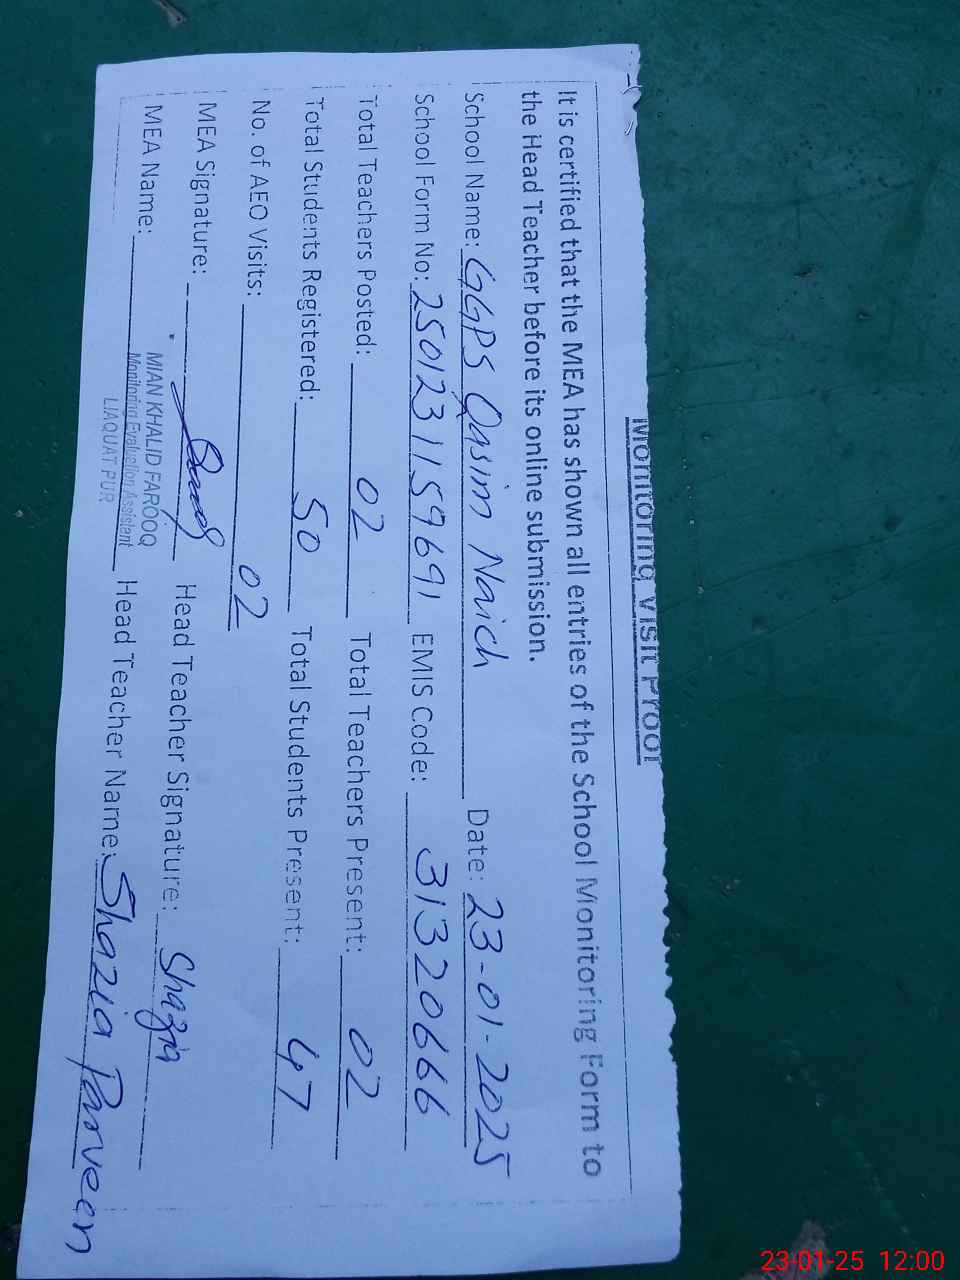 Monitoring Visit Proof
It is certified that the MEA has shown all entries of the School Monitoring Form to
the Head Teacher before its online submission.
School Name: GGPS Qasim Naich Date: 23-01-2025
School Form No: 2501231159691 EMIS Code: 31320666
Total Teachers Posted: 02 Total Teachers Present: 02
Total Students Registered: 50 Total Students Present: 47
No. of AEO Visits: 02
MEA Signature: Head Teacher Signature: Shazia
MEA Name: MIAN KHALID FAROOQ Head Teacher Name: Shazia Parveen
Monitoring Evaluation Assistant
LIAQUAT PUR
23-01-25 12:00